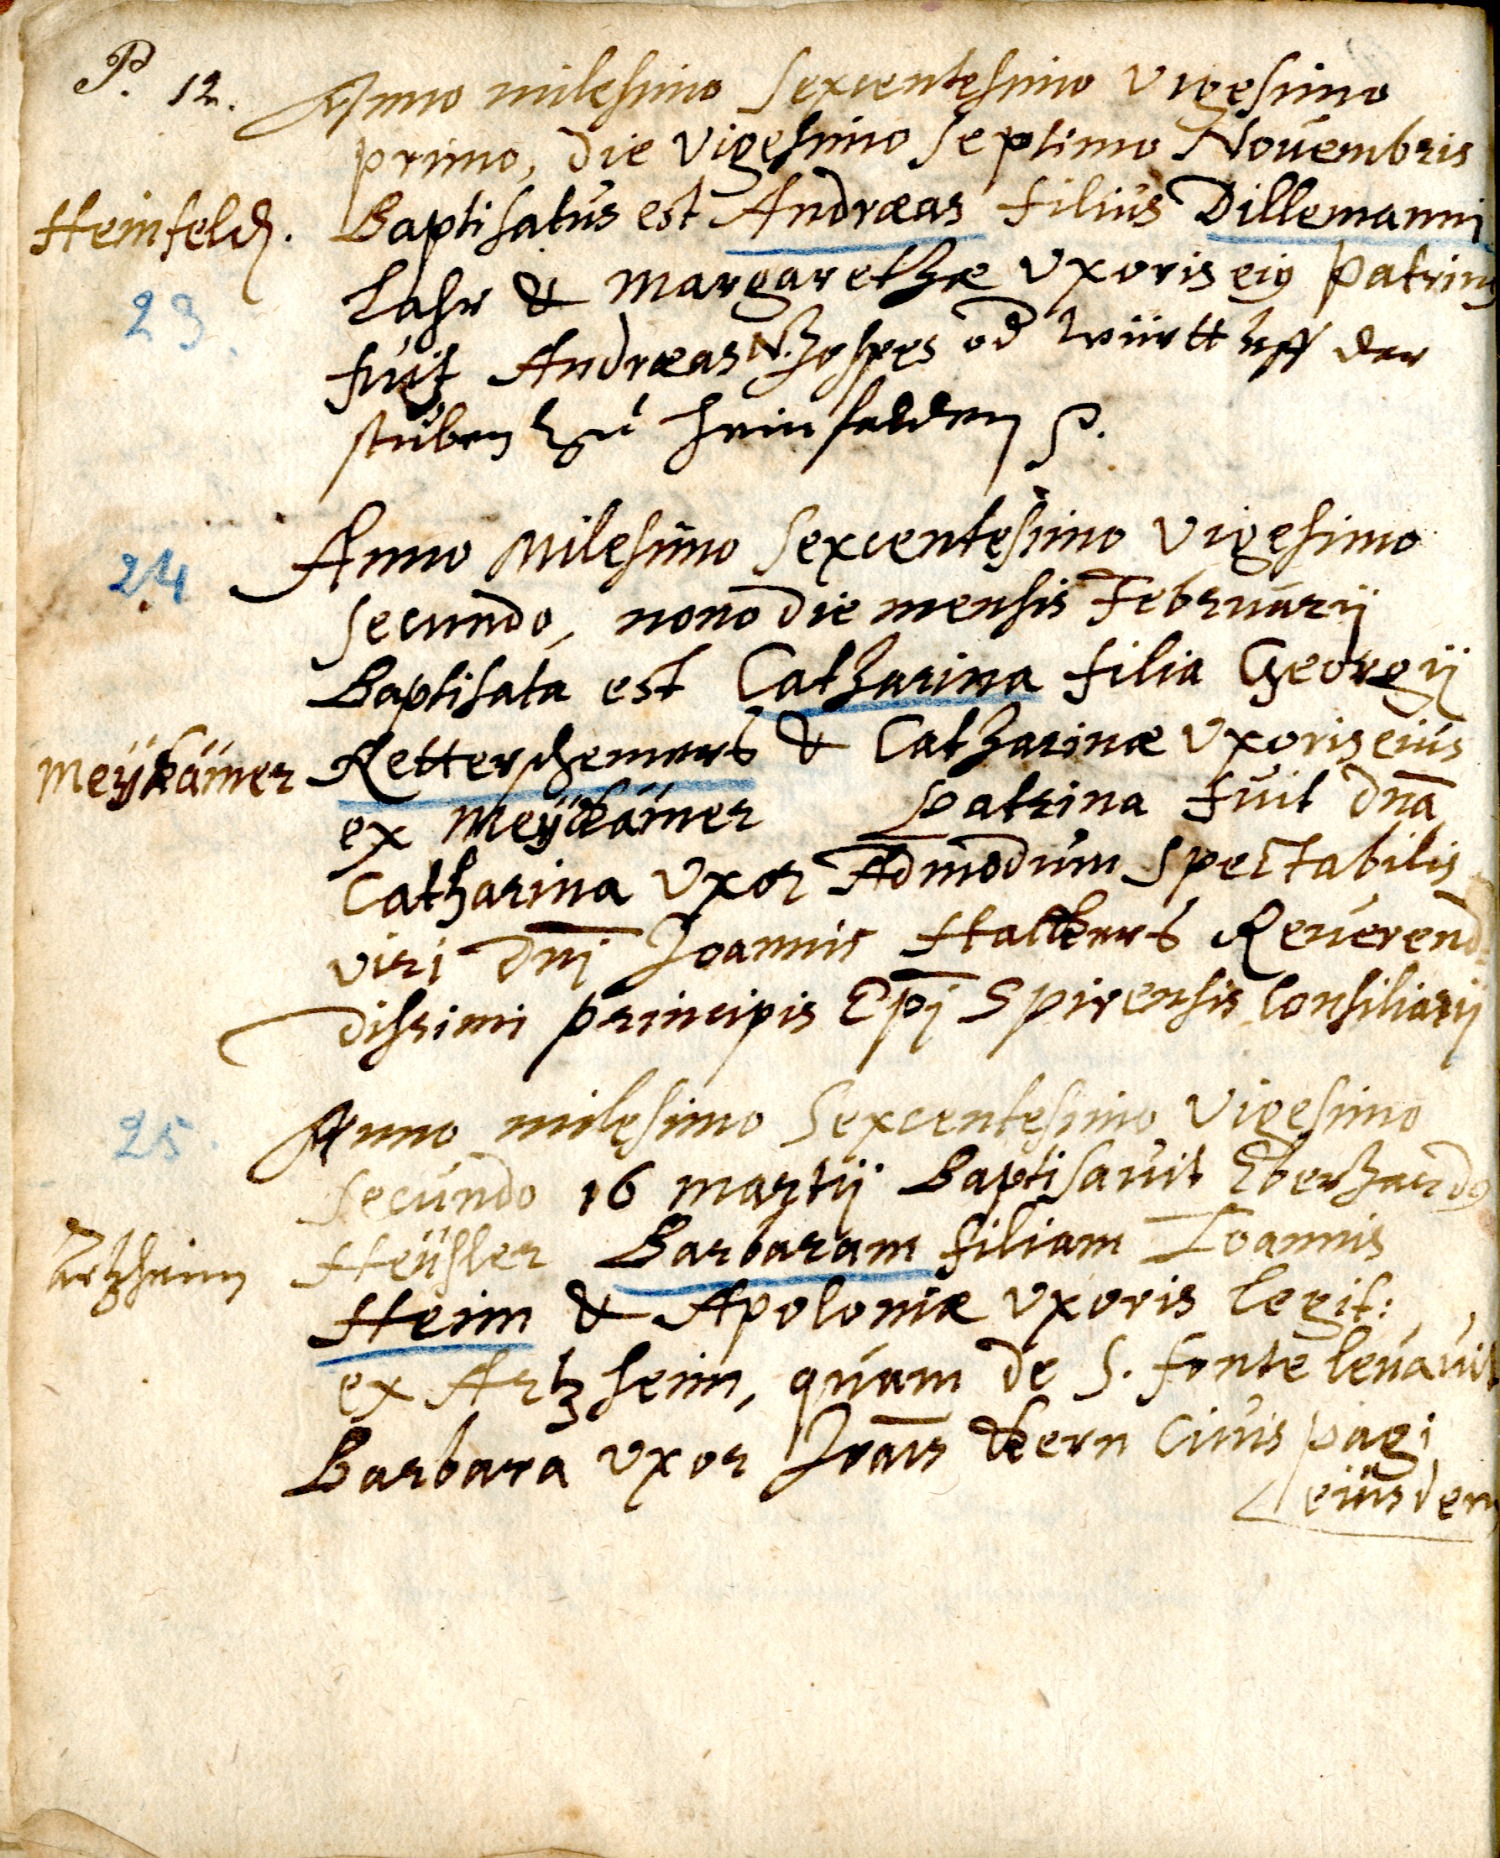 P. 12. Anno milesimo Sexcentesimo Vigesimo
primo, die Vigesimo Septimo Novembris
Heinfeld. Baptisatus est Andræas filius Dillemanni
23. Lahr & Margarethæ Uxoris eig Patrinus
fuit Andræas N. hospes od württ uff der
stuben zu Heinfelden P.
24 Anno Milesimo Sexcentesimo Vigesimo
Secundo, nono die mensis Februarij
Baptisata est Catharina filia Georgij
Meÿkam̄er & Catharinæ Uxoris eius
ex Meÿckam̄er Patrina fuit dn̄a
Catharina Uxor Admodum Spectabilis
viri Dn̄j Joannis Reverend=
dissimi Principis Ep̄j Spirensis Consiliarij
25. Anno milesimo Sexcentesimo Vigesimo
Secundo 16 Martij Baptisavit Eberhardg
Artzheim Heüsler Barbaram filiam Ioannis
Heim & Apoloniæ Uxoris legit:
ex Artzheim, quam de S. fonte levavit
Barbara Uxor Joān̄s Kern Civis pagi
eiusdem